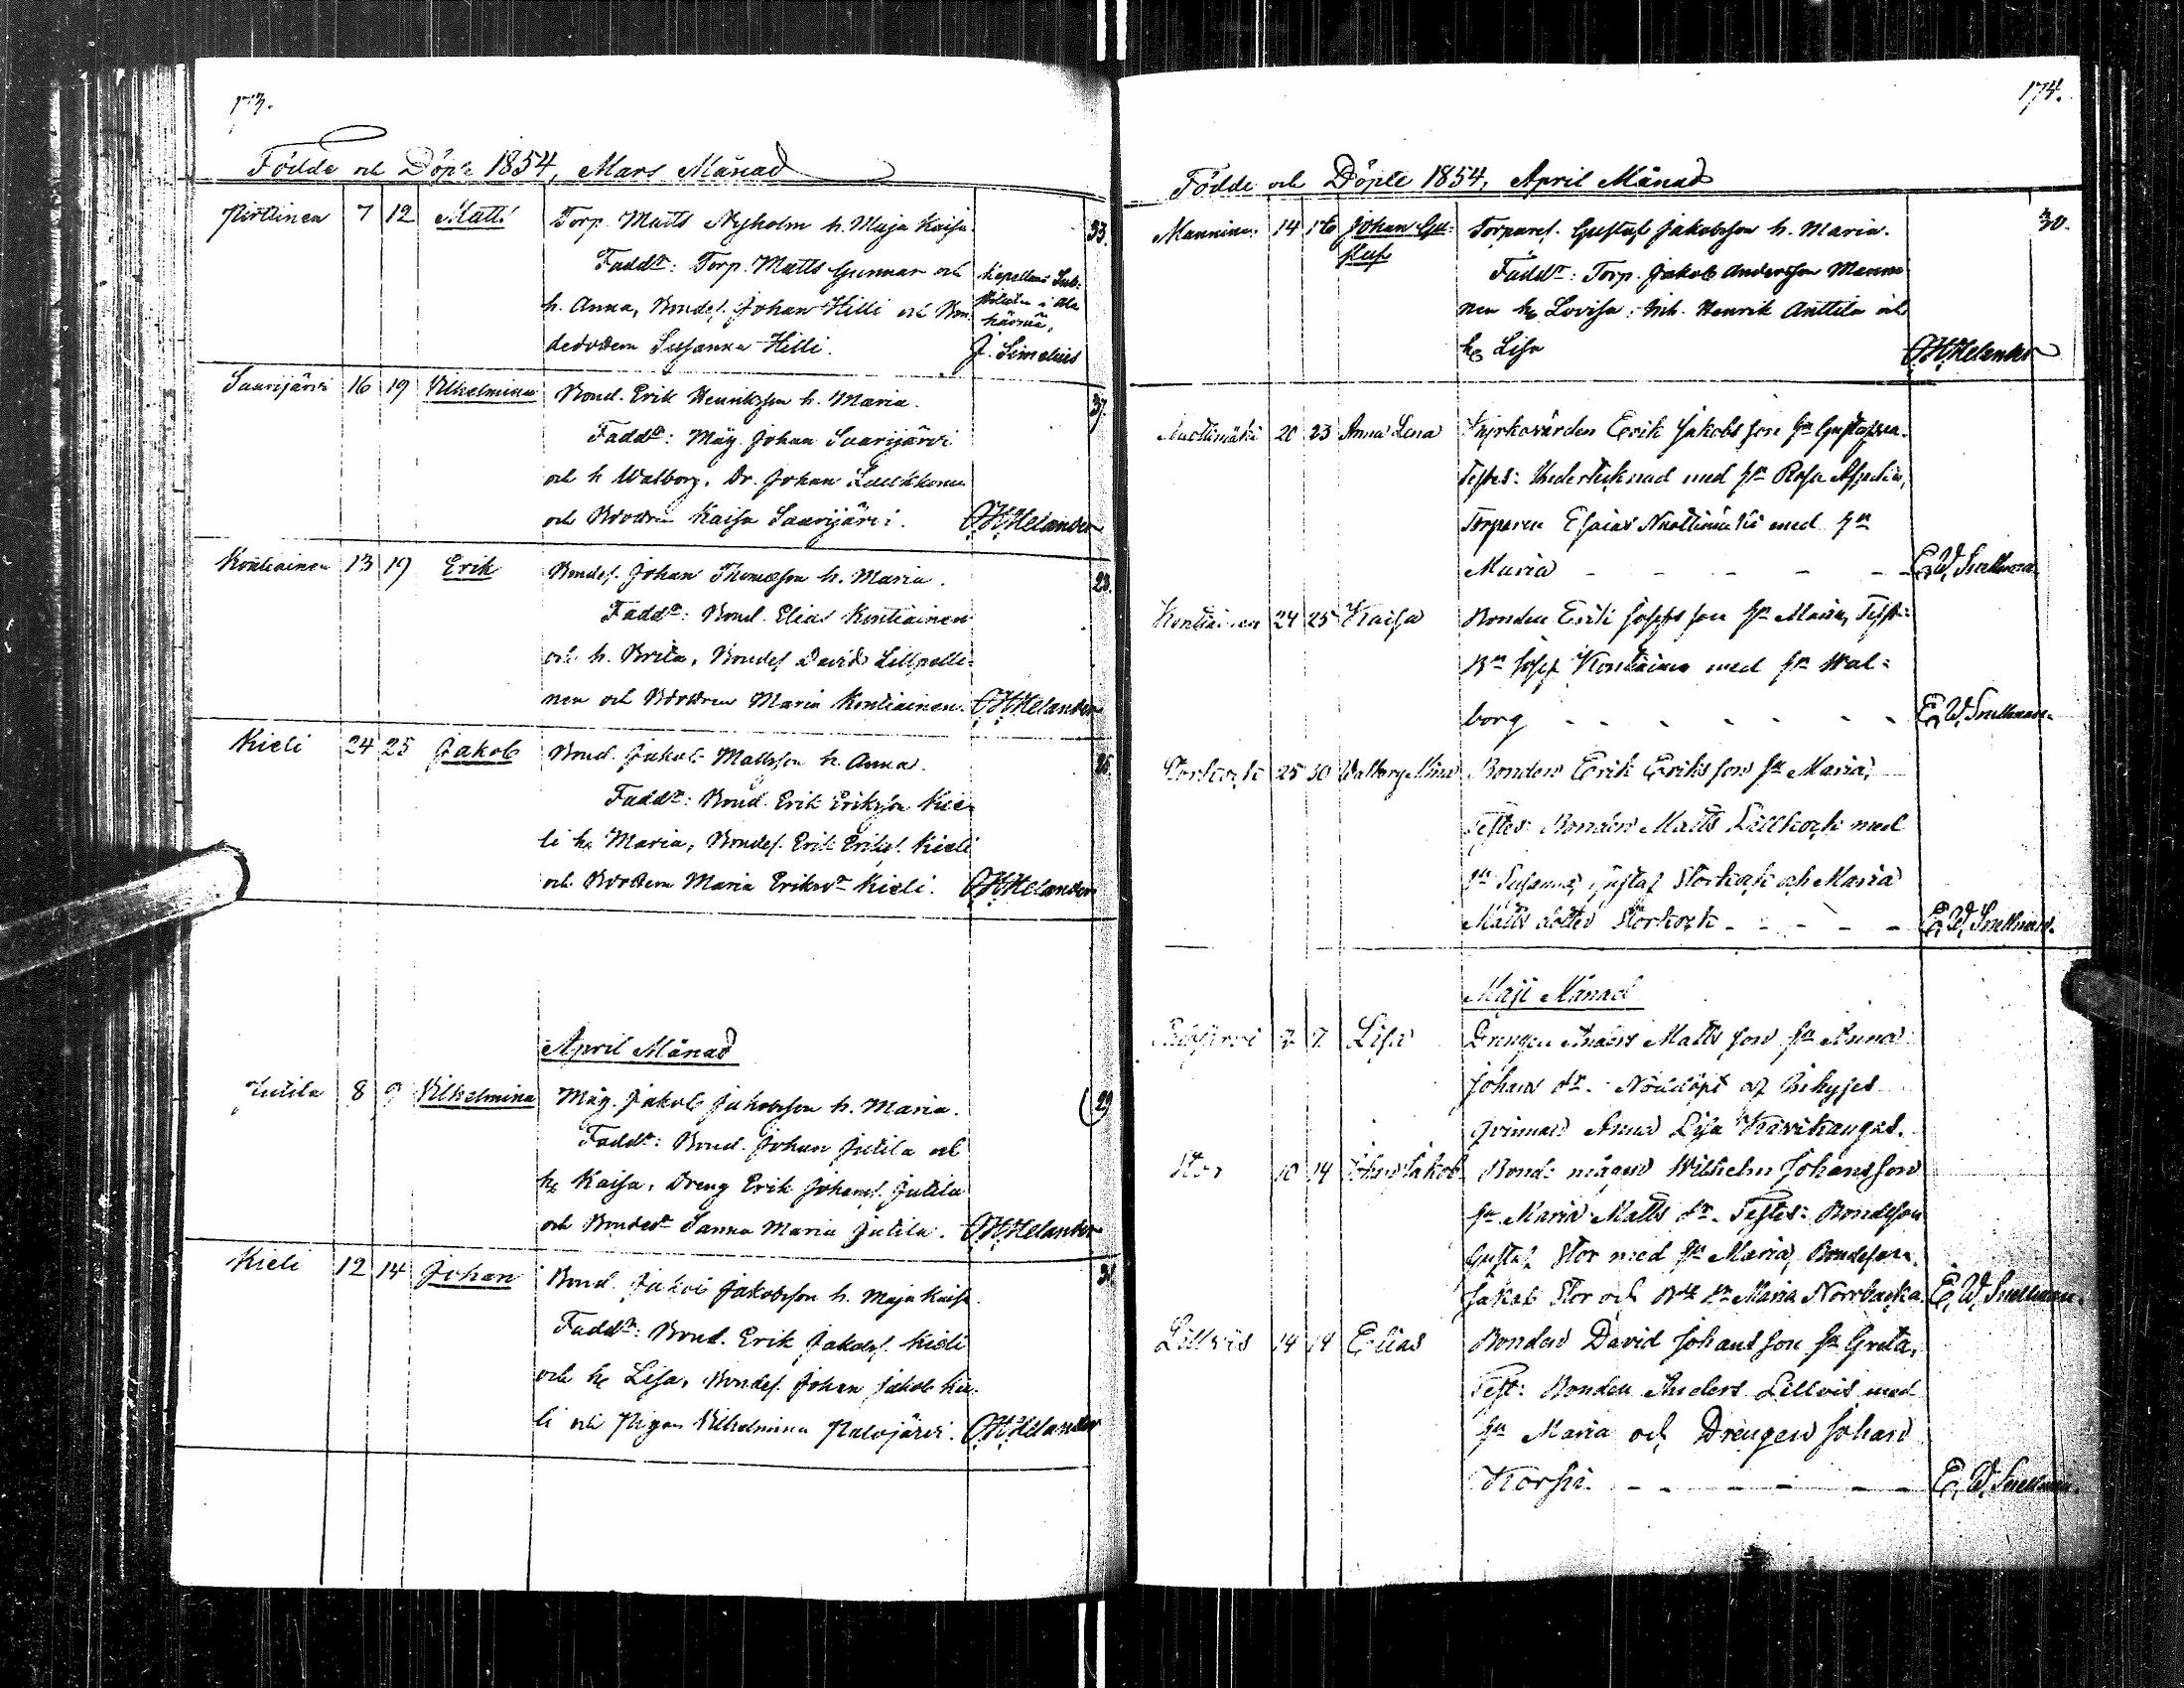 173.
Födde och Döpte 1854, Mars Månad
Pirttinen 7 12 Matts Torp. Matts Nyholm h. Maja Kaisa. 33.
Faddr: Torp. Matts Gunnar och Kapellans Sub-
h. Anna, Bondes. Johan Hilli och Bon- i Ala
dedottern Susanna Hilli. härmä, J. Simelius
Saarijärvi 16 19 Vilhelmina Bond. Erik Henriksson h. Maria. 37.
Faddr: Måg. Johan Saarijärvi
och h Walborg, Dr. Johan
och Bdottren Kaisa Saarijärvi. O H Helander
Kontiainen 13 19 Erik Bondes. Johan Thomasson h. Maria. 23.
Faddr: Bond. Elias Kontiainen
och h. Brita, Bondes David Lillpelli-
nen och Bdottren Maria Kontiainen. O H Helander
Kieli 24 25 Jakob Bond. Jakob Mattsson h. Anna.
Faddr: Bond. Erik Eriksson Kie-
li h. Maria, Bondes. Erik Eriks. Kieli
och Bdottern Maria Eriksdr Kieli. O H Helander
April Månad
Jutila 8 9 Vilhelmina Måg. Jakob Jakobsson h. Maria. 29
Faddr: Bond. Johan Jutila och
h. Kaisa, Dreng Erik Johans. Jutila
och Bondedr Sanna Maria Jutila. O H Helander
Kieli 12 14 Johan Bond. Jakob Jakobsson h. Maja Kaisa.
Faddr: Bond. Erik Jakobs. Kieli
och h. Lisa, Bondes. Johan Jakob Kie-
li och Pigan Vilhelmina Palojärvi. O H Helander
174.
Födde och Döpte 1854, April Månad
Manninen 14 16 Johan Gu- Torpares. Gustaf Jakobsson h. Maria. 30.
staf Faddr: Torp. Jakob Andersson Manni
nen h. Lovisa, Inh. Henrik Anttila och
h. Lisa O H Helander
Nuottimäki 20 23 Anna Lena Kyrkovärden Erik Jakobsson
Testes: Undertecknad med hu Rosa
Torparen Esaias Nuottimäki med hu
Maria - - - - - E. W. Snellman.
Kontiainen 24 25 Kaisa Bonden Erik Josefs son hu Maria, Test:
Bn Josef Kontiainen med hu Wal-
borg - - - - - - - E. W. Snellman.
Storkock 25 30 Walborg Mina Bonden Erik Eriks son hu Maria,
Testes: Bonden Matts Lillkock med
hu Susanna, Gustaf Storkock och Maria
Matts dotter Storkock - - - - - E. W. Snellman.
Maji Månad
7 Lisa Drengen Anders Matts son hu Anna
Johans dr. Nöddöpt af
qvinnan Anna Lisa Karikangas.
Stor 10 14 Johan Jakob Bonde mågen Wilhelm Johansson
hu Maria Matts dr. Testes: Bondeson
Gustaf Stor med hu Maria, Bondeson
Jakob Stor och Maria Norrbacka. E. W. Snellman.
Lillvis 14 14 Elias Bonden David Johansson hu Greta,
Test: Bonden Anders Lillvis med
hu Maria och Drengen Johan
Korpi. - - - - - - E. W. Snellman.